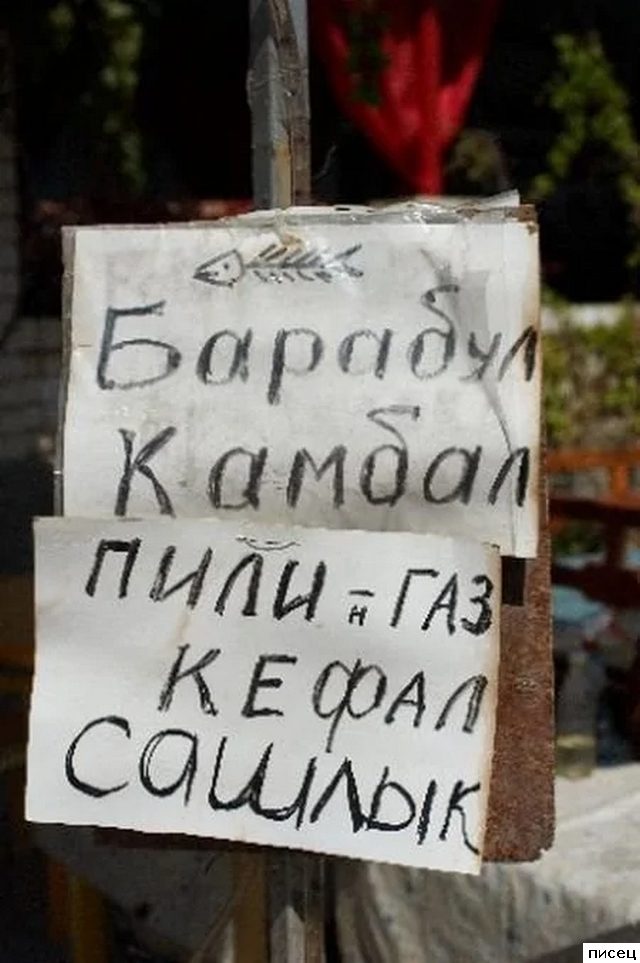 Барабул
Камбал
ПИЛИнГАЗ
КЕФАЛ
Сашлык
писец